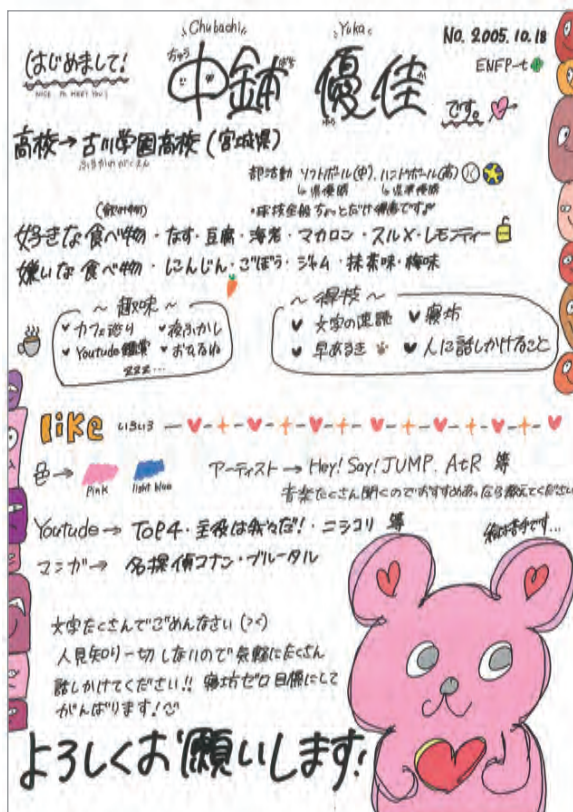 Chubachi Yuka
No. 2005.10.18
はじめまして!
NICE TO MEET YOU!
ちゅう ばち
中鉢 優佳
ENFP-t
です。
高校→古川学園高校(宮城県)
ふるかわがくえん
部活動 ソフトボール(中)、ハンドボール(高)
↳県優勝 ↳県準優勝
・球技全般ちょっとだけ得意です
(飲み物)
好きな食べ物・なす・豆腐・海老・マカロン・スルメ・レモンティー
嫌いな食べ物・にんじん・ごぼう・ジャム・抹茶味・梅味
〜趣味〜
カフェ巡り 夜ふかし
Youtube鑑賞 おひるね
zzz...
〜特技〜
文字の速読 寝坊
早あるき 人に話しかけること
like いろいろ
色→ Pink light blue
アーティスト→Hey! Say! JUMP、AtR 等
音楽たくさん聞くのでおすすめあったら教えてください
Youtube→ TOP4・主役は我々だ!・ニシコリ 等
絵は苦手です...
マンガ→ 名探偵コナン・ブルータル
文字たくさんでごめんなさい(><)
人見知り一切しないので気軽にたくさん
話しかけてください!! 寝坊ゼロ目標にして
がんばります!
よろしくお願いします!